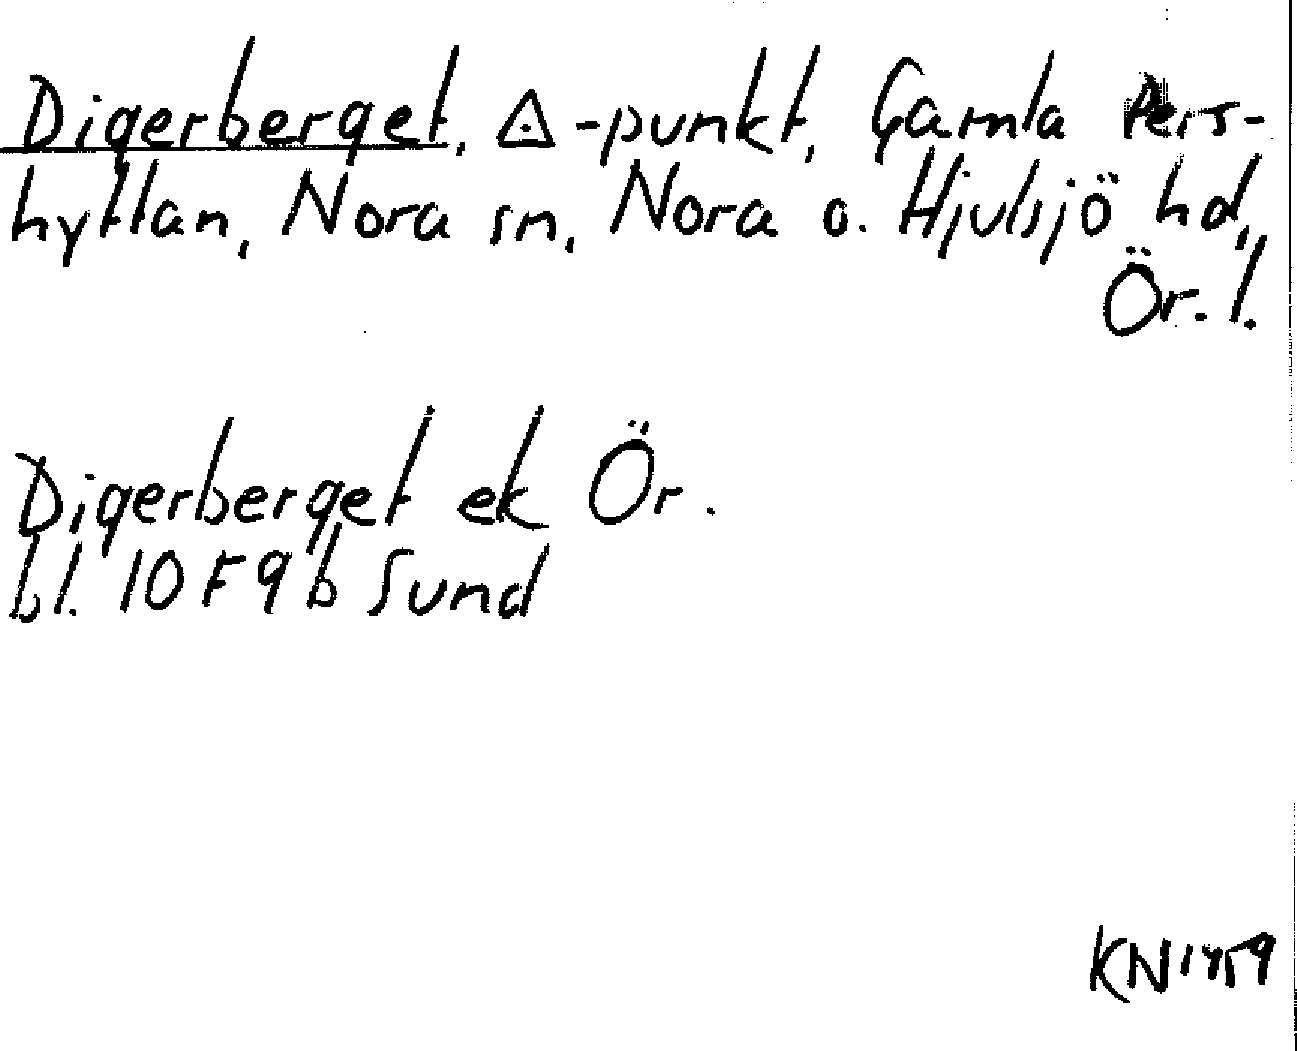 Digerberget, △-punkt, Gamla Pers-
hyttan, Nora sn, Nora o. Hjulsjö hd,
Ör. l.
Digerberget ek Ör.
bl. 10 F 9 b Sund